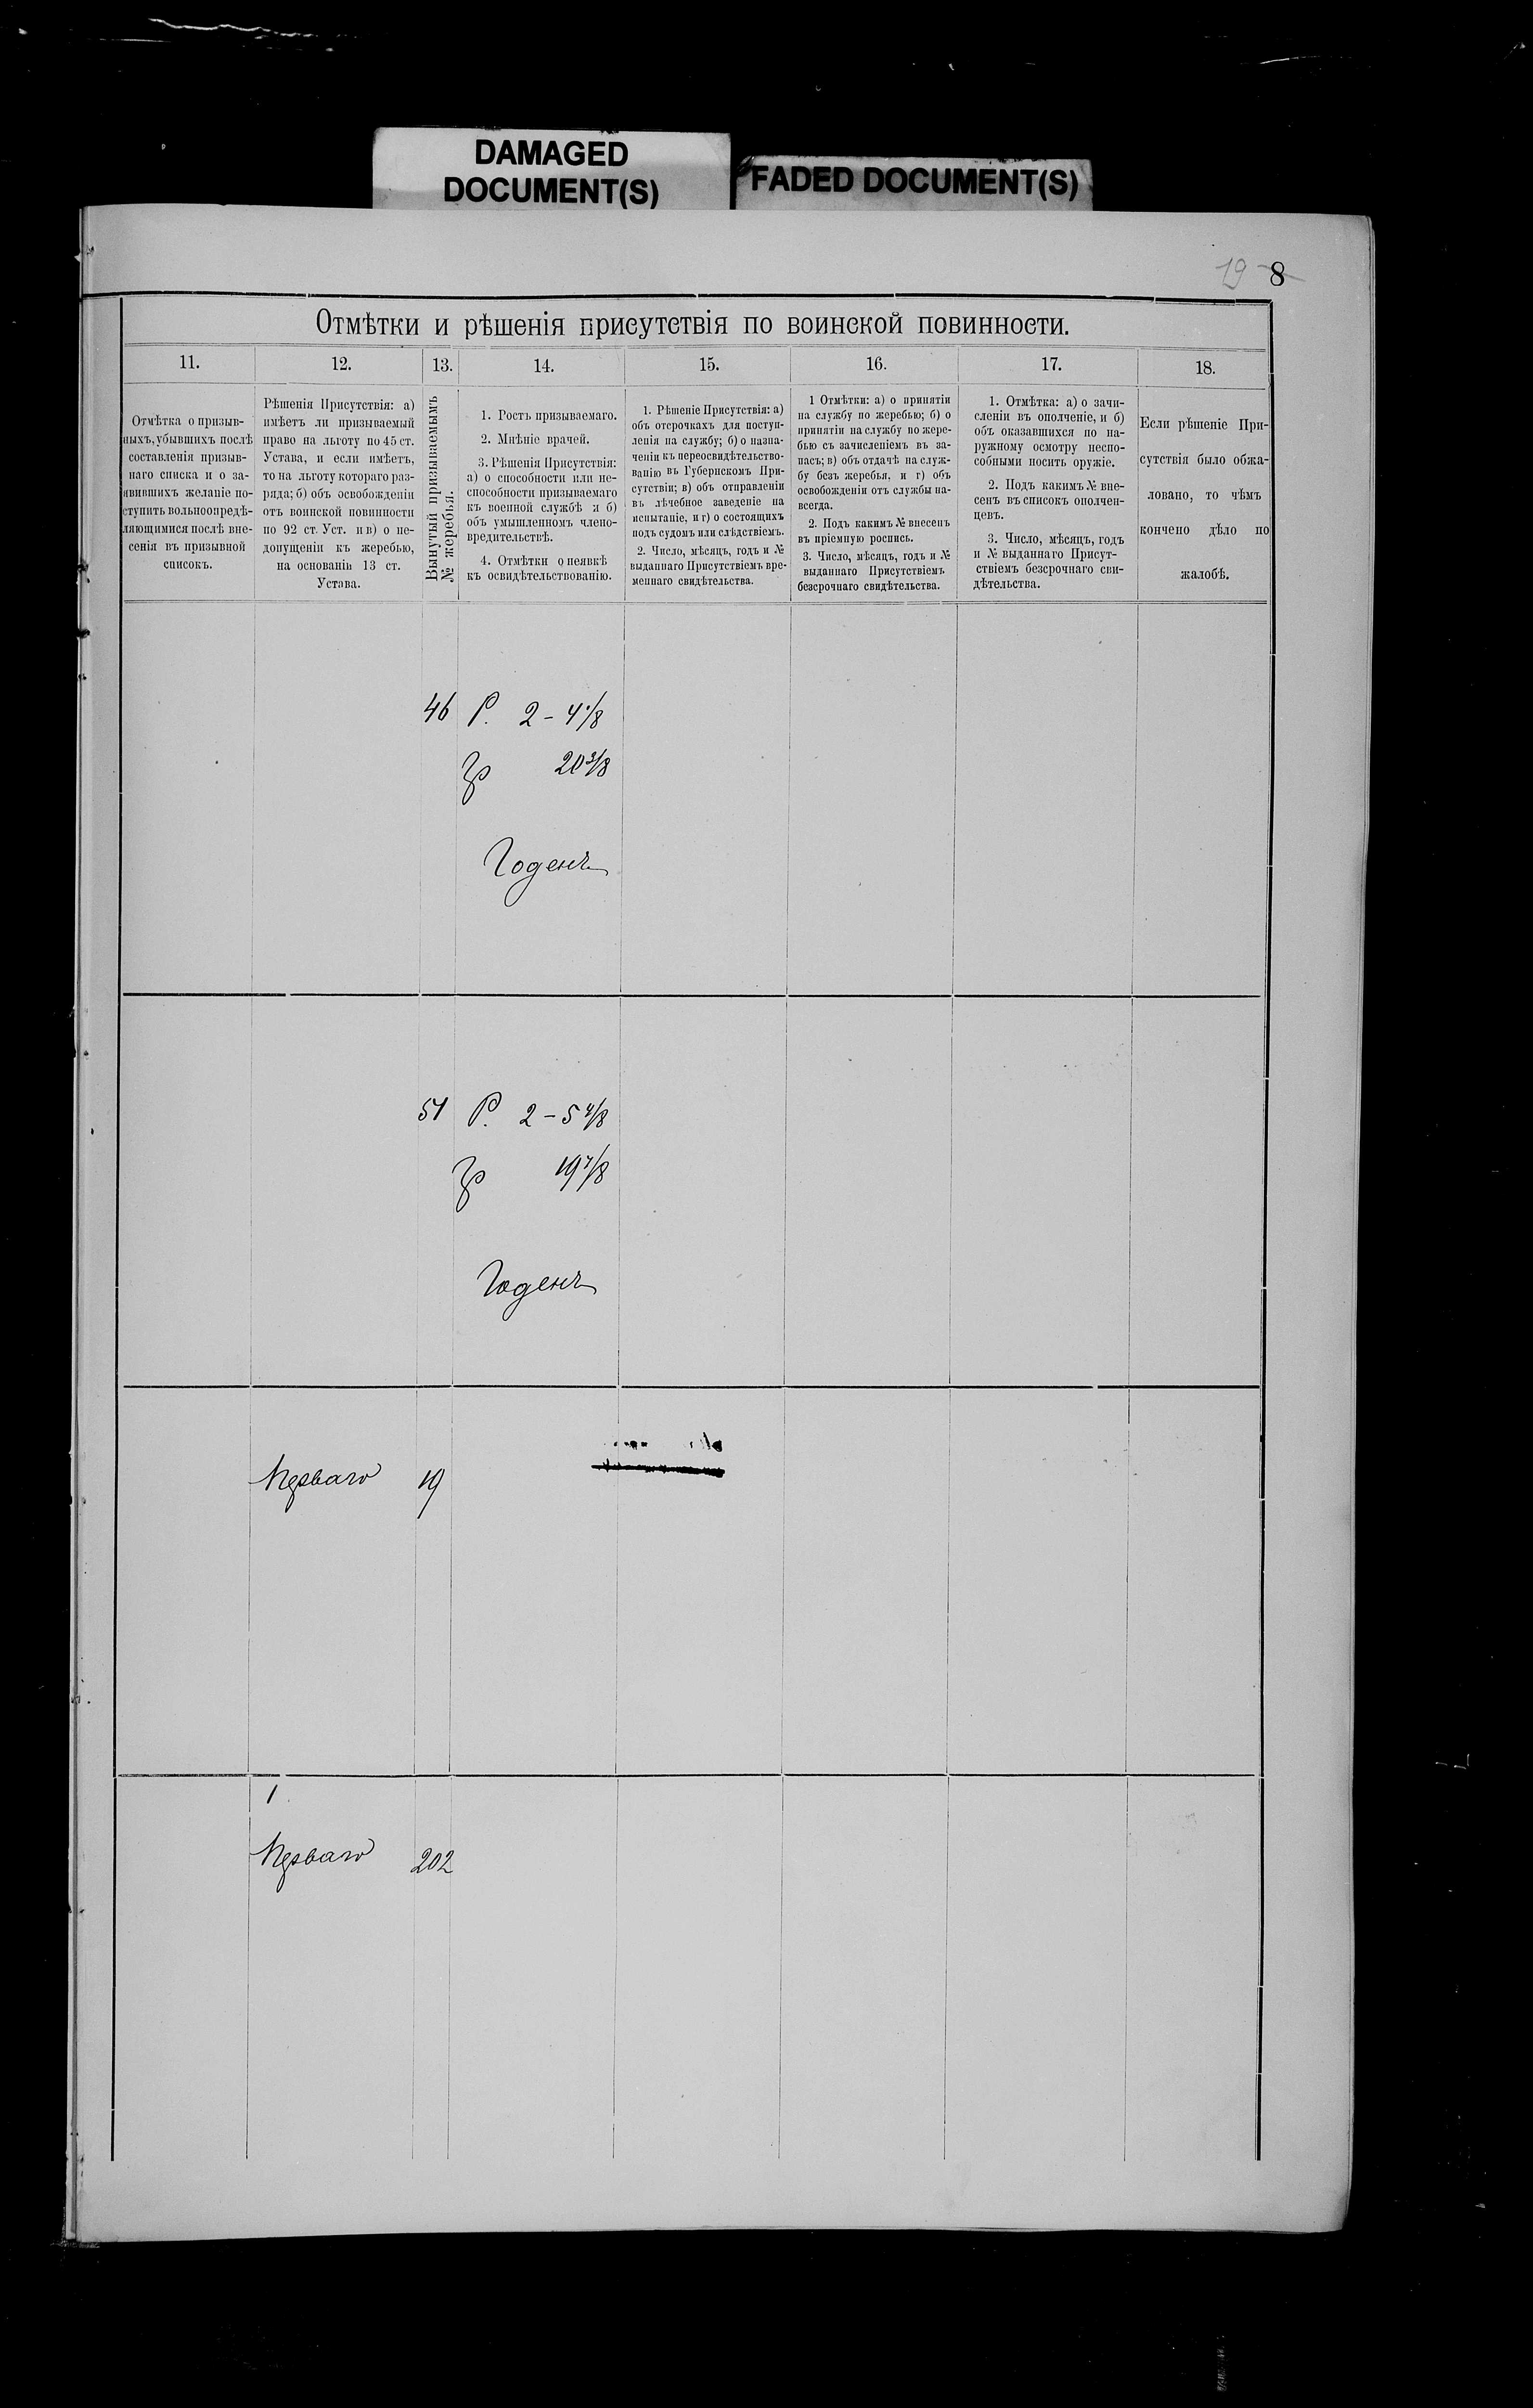 DAMAGED
DOCUMENT(S)
FADED DOCUMENT(S)
19 8
Отмѣтки и рѣшенія присутствія по воинской повинности.
11.
12.
13.
14.
15.
16.
17.
18.
Отмѣтка о призыв-
ныхъ, убывшихъ послѣ
составленія призыв-
наго списка и о за-
явившихъ желаніе по-
ступить вольноопредѣ-
ляющимися послѣ вне-
сенія въ призывной
списокъ.
Рѣшенія Присутствія: а)
имѣетъ ли призываемый
право на льготу по 45 ст.
Устава, и если имѣетъ,
то на льготу котораго раз-
ряда; б) объ освобожденіи
отъ воинской повинности
по 92 ст. Уст. и в) о не-
допущеніи къ жеребью,
на основаніи 13 ст.
Устава.
Вынутый призываемымъ
№ жеребья.
1. Ростъ призываемаго.
2. Мнѣніе врачей.
3. Рѣшенія Присутствія:
а) о способности или не-
способности призываемаго
къ военной службѣ и б)
объ умышленномъ члено-
вредительствѣ.
4. Отмѣтки о неявкѣ
къ освидѣтельствованію.
1. Рѣшеніе Присутствія: а)
объ отсрочкахъ для поступ-
ленія на службу; б) о назна-
ченіи къ переосвидѣтельство-
ванію въ Губернскомъ При-
сутствіи; в) объ отправленіи
въ лѣчебное заведеніе на
испытаніе, и г) о состоящихъ
подъ судомъ или слѣдствіемъ.
2. Число, мѣсяцъ, годъ и №
выданнаго Присутствіемъ вре-
меннаго свидѣтельства.
1 Отмѣтки: а) о принятіи
на службу по жеребью; б) о
принятіи на службу по жере-
бью съ зачисленіемъ въ за-
пасъ; в) объ отдачѣ на служ-
бу безъ жеребья, и г) объ
освобожденіи отъ службы на-
всегда.
2. Подъ какимъ № внесенъ
въ пріемную роспись.
3. Число, мѣсяцъ, годъ и №
выданнаго Присутствіемъ
безсрочнаго свидѣтельства.
1. Отмѣтка: а) о зачи-
сленіи въ ополченіе, и б)
объ оказавшихся по на-
ружному осмотру неспо-
собными носить оружіе.
2. Подъ какимъ № вне-
сенъ въ списокъ ополчен-
цевъ.
3. Число, мѣсяцъ, годъ
и № выданнаго Присут-
ствіемъ безсрочнаго сви-
дѣтельства.
Если рѣшеніе При-
сутствія было обжа-
ловано, то чѣмъ
кончено дѣло по
жалобѣ.
46 Р. 2 - 4 1/8
Гр 20 3/8
Годенъ
51 Р. 2 - 5 4/8
Гр 19 7/8
Годенъ
Перваго 19
1
Перваго 202